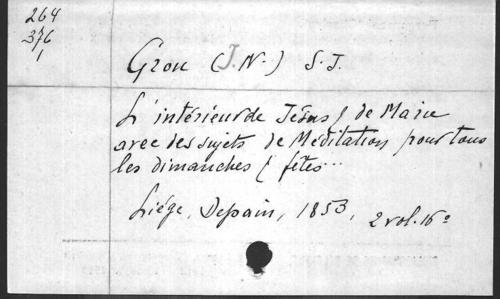 264
376
1
Grou (J. N.) S. J.
L'intérieur de Jésus & de Marie
avec des sujets de Méditation pour tous
les dimanches & fêtes...
Liége, Dessain, 1853, 2 vol. 16º